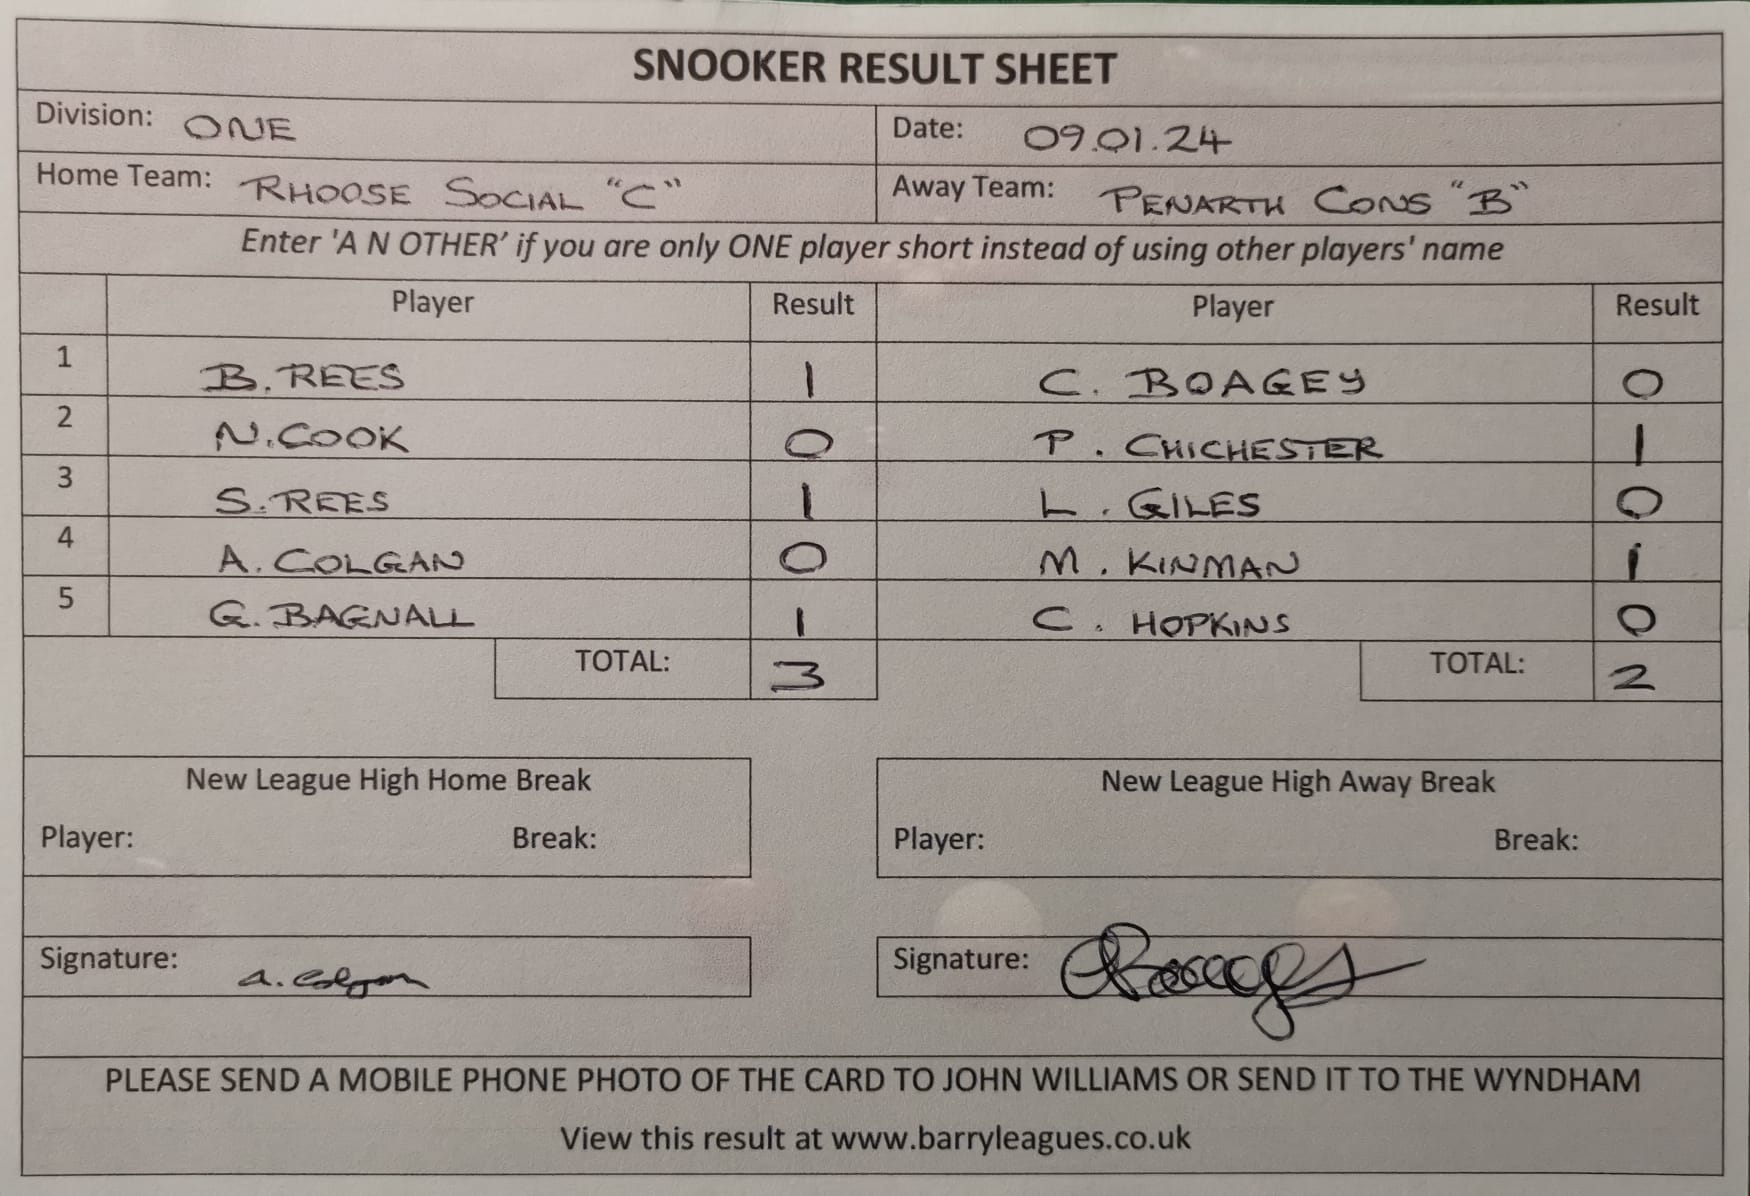 SNOOKER RESULT SHEET
Division: ONE Date: 09.01.24
Home Team: RHOOSE SOCIAL "C" Away Team: PENARTH CONS "B"
Enter 'A N OTHER' if you are only ONE player short instead of using other players' name
Player Result Player Result
1 B. REES 1 C. BOAGEY 0
2 N. COOK 0 P. CHICHESTER 1
3 S. REES 1 L. GILES 0
4 A. COLGAN 0 M. KINMAN 1
5 G. BAGNALL 1 C. HOPKINS 0
TOTAL: 3 TOTAL: 2
New League High Home Break New League High Away Break
Player: Break: Player: Break:
Signature: A. Colgan Signature:
PLEASE SEND A MOBILE PHONE PHOTO OF THE CARD TO JOHN WILLIAMS OR SEND IT TO THE WYNDHAM
View this result at www.barryleagues.co.uk